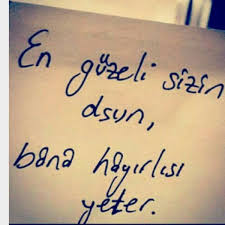 En güzeli sizin
olsun,
bana hayırlısı
yeter.